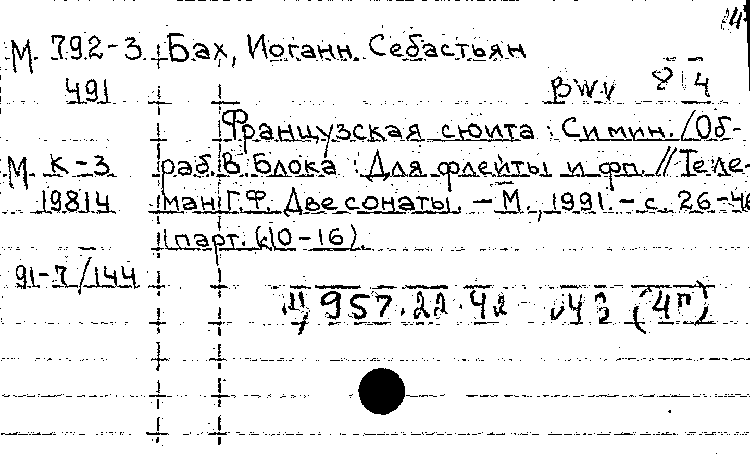 М 792-3 Бах, Иоганн Себастьян
491 BWV 814
Французская сюита : Си мин. / Об-
М К-3 раб. В. Блока : Для флейты и фп. // Теле-
19814 ман Г.Ф. Две сонаты. — М., 1991. — с. 26-46
1 парт. (с. 10-16).
91-7/144
957.22.42 (4п)